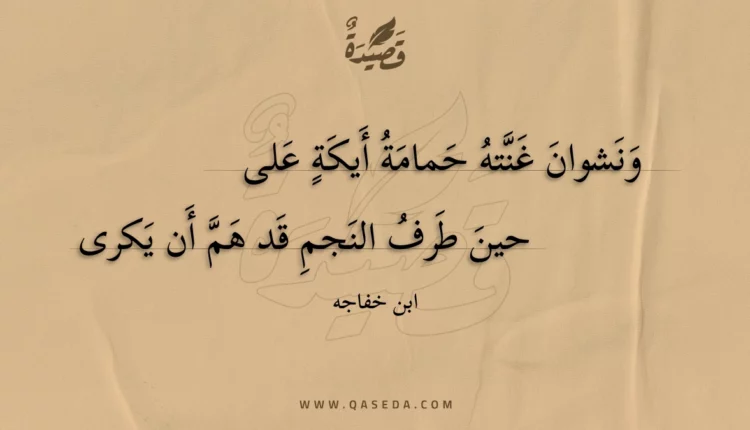 قَصِيْدَةٌ
وَنَشوانَ غَنَّتهُ حَمامَةُ أَيكَةٍ عَلى
حينَ طَرفُ النَجمِ قَد هَمَّ أَن يَكرى
ابن خفاجه
WWW.QASEDA.COM